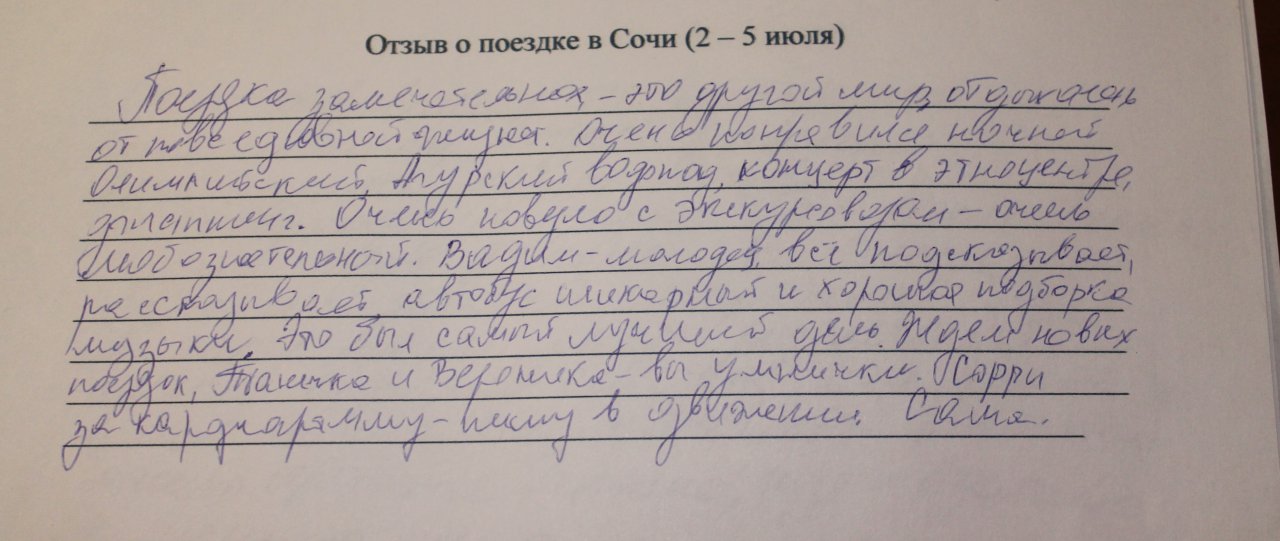 Отзыв о поездке в Сочи (2 – 5 июля)
Поездка замечательная, – это другой мир, отдыхаешь
от повседневной жизни. Очень понравился ночной
Олимпийский, Агурский водопад, концерт в этноцентре,
Очень повезло с экскурсоводам – очень
любознательный. Вадим – молодец, всё подсказывает,
рассказывает, автобус шикарный и хорошая подборка
музыки. Это был самый лучший день. Ждем новых
поездок, Танечка и Вероника – вы умнички. Сорри
за кардиограмму – пишу в движении. Саша.